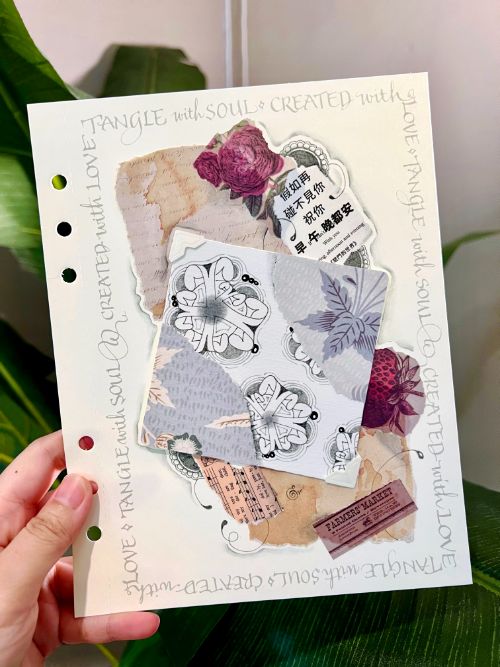 TANGLE with SOUL ⋄ CREATED with
LOVE ⋄ TANGLE with SOUL & CREATED with LOVE
TANGLE with SOUL ⋄ CREATED with
LOVE ⋄ TANGLE with SOUL & CREATED with LOVE
假如再
碰不見你
祝你
早午晚都安
wish you
afternoon and evening
的世界》
FARMERS' MARKET